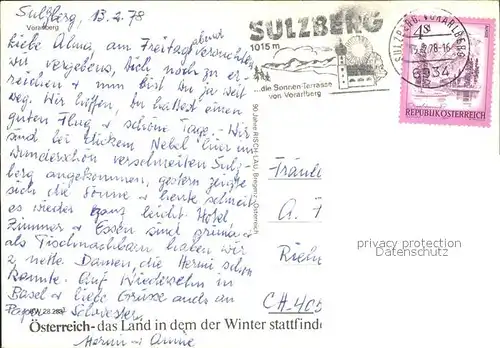 Sulzberg, 13.2.78
Vorarlberg
abend
Liebe Alma, am Freitag versuchten
wir vergebens, Dich noch zu er-
reichen & nun bist Du ja weit
weg. Wir hoffen, Du hattest einen
guten Flug & schöne Tage. Wir
sind bei dickem Nebel hier im
wunderschön verschneiten Sulz-
berg angekommen, gestern zeigte
sich die Sonne & heute schneit
es wieder ganz leicht. Hotel
Zimmer & Essen sind prima &
als Tischnachbarn haben wir
2 nette Damen, die Hermi schon
kannte. Auf Wiedersehn in
Basel & liebe Grüsse auch an
Papa & Schwester
Hermi & Annie
RW 28.288
Österreich - das Land in dem der Winter stattfinde
90 Jahre RISCH-LAU, Bregenz, Österreich
SULZBERG
1015 m
...die Sonnen-Terrasse
von Vorarlberg
SULZBERG, VORARLBERG
13.-2.78-16
6934
4S
REPUBLIK ÖSTERREICH
Fräule
A. F
Rieh
CH-405
privacy protection
Datenschutz